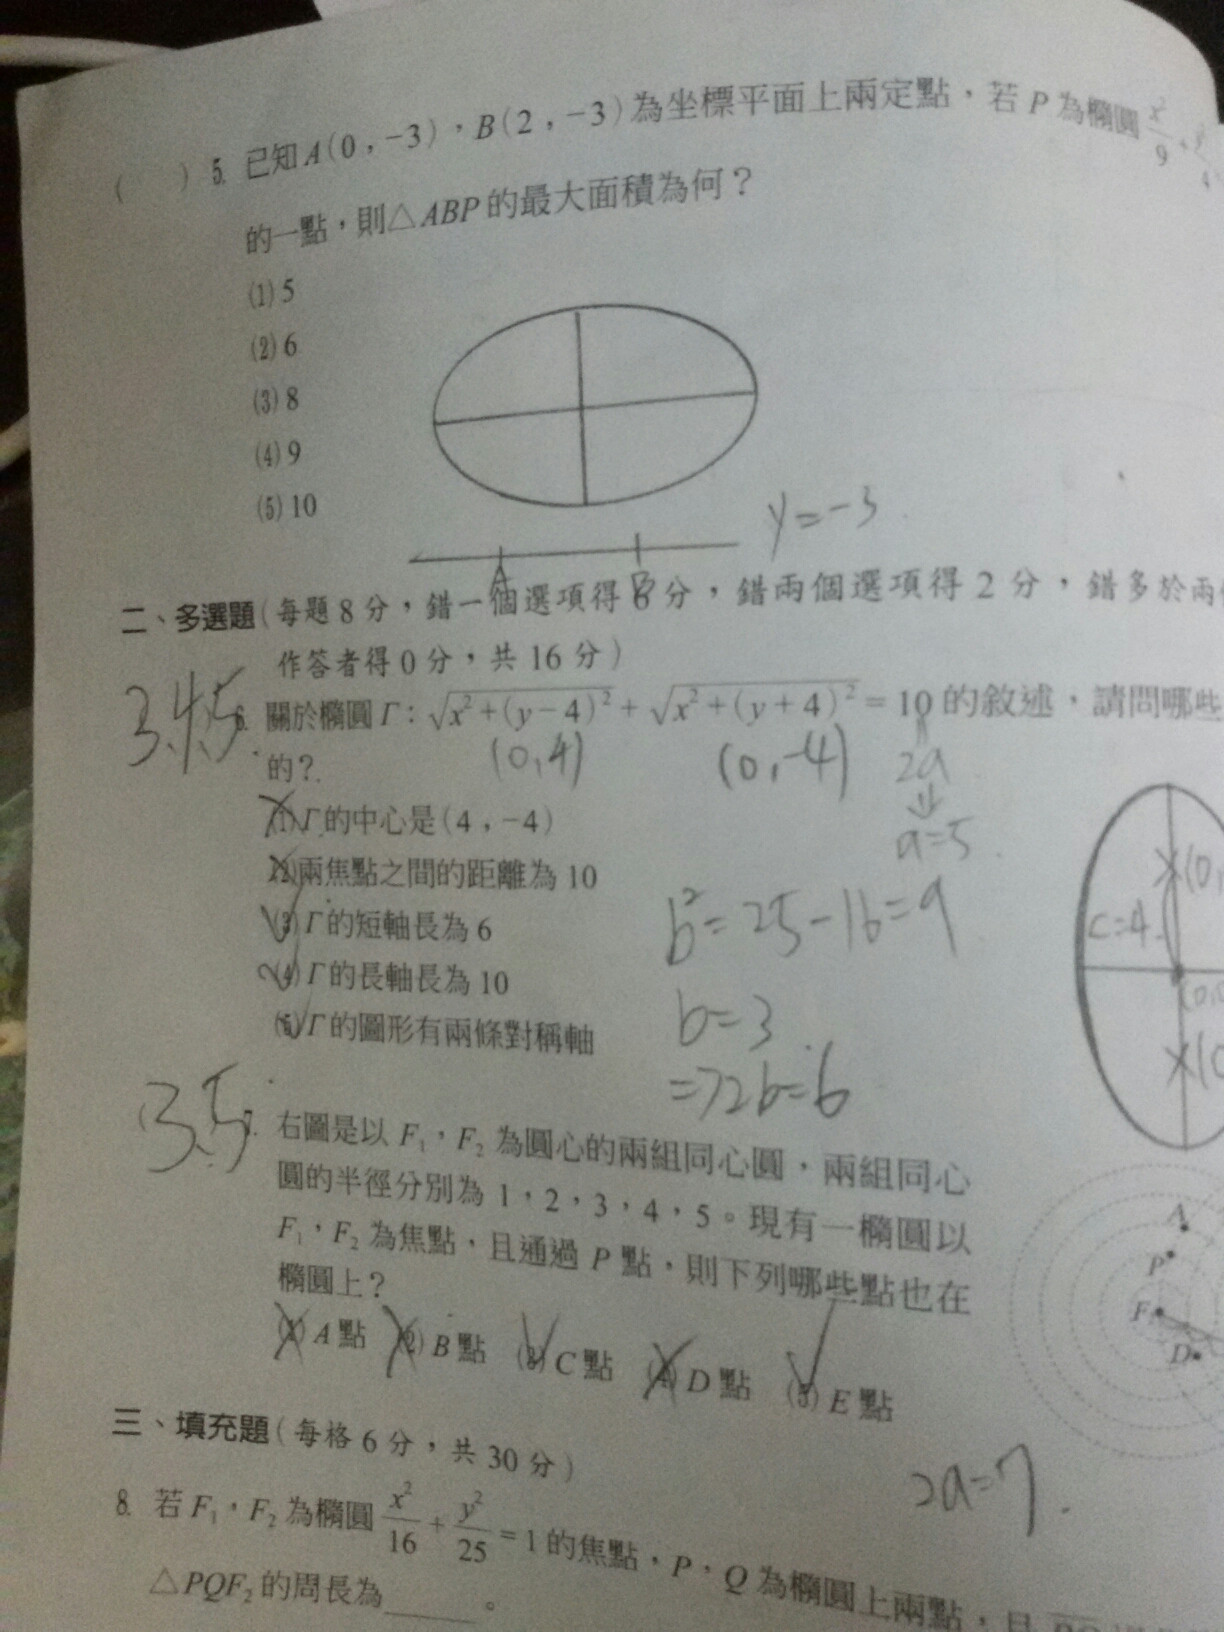 (　) 5. 已知A(0，-3)，B(2，-3)為坐標平面上兩定點，若P為橢圓 x²/9
的一點，則△ABP的最大面積為何？
(1) 5
(2) 6
(3) 8
(4) 9
(5) 10
y=-3
A B
二、多選題(每題8分，錯一個選項得 分，錯兩個選項得2分，錯多於兩
作答者得0分，共16分)
3.4.5
6. 關於橢圓Γ：√x²+(y-4)²+√x²+(y+4)²=10的敘述，請問哪些
(0,4) (0,-4) 2a
的？
(1) Γ的中心是(4，-4)
a=5
(2) 兩焦點之間的距離為10
b²=25-16=9
(3) Γ的短軸長為6
c=4
(4) Γ的長軸長為10
(5) Γ的圖形有兩條對稱軸
b=3
=>2b=6
3.5
7. 右圖是以F₁，F₂為圓心的兩組同心圓，兩組同心
圓的半徑分別為1，2，3，4，5。現有一橢圓以
F₁，F₂為焦點，且通過P點，則下列哪些點也在
橢圓上？
A
P
F
D
(1) A點 (2) B點 (3) C點 (4) D點 (5) E點
三、填充題(每格6分，共30分)
2a=7
8. 若F₁，F₂為橢圓 x²/16 + y²/25 = 1的焦點，P，Q為橢圓上兩點，且
△PQF₂的周長為______。